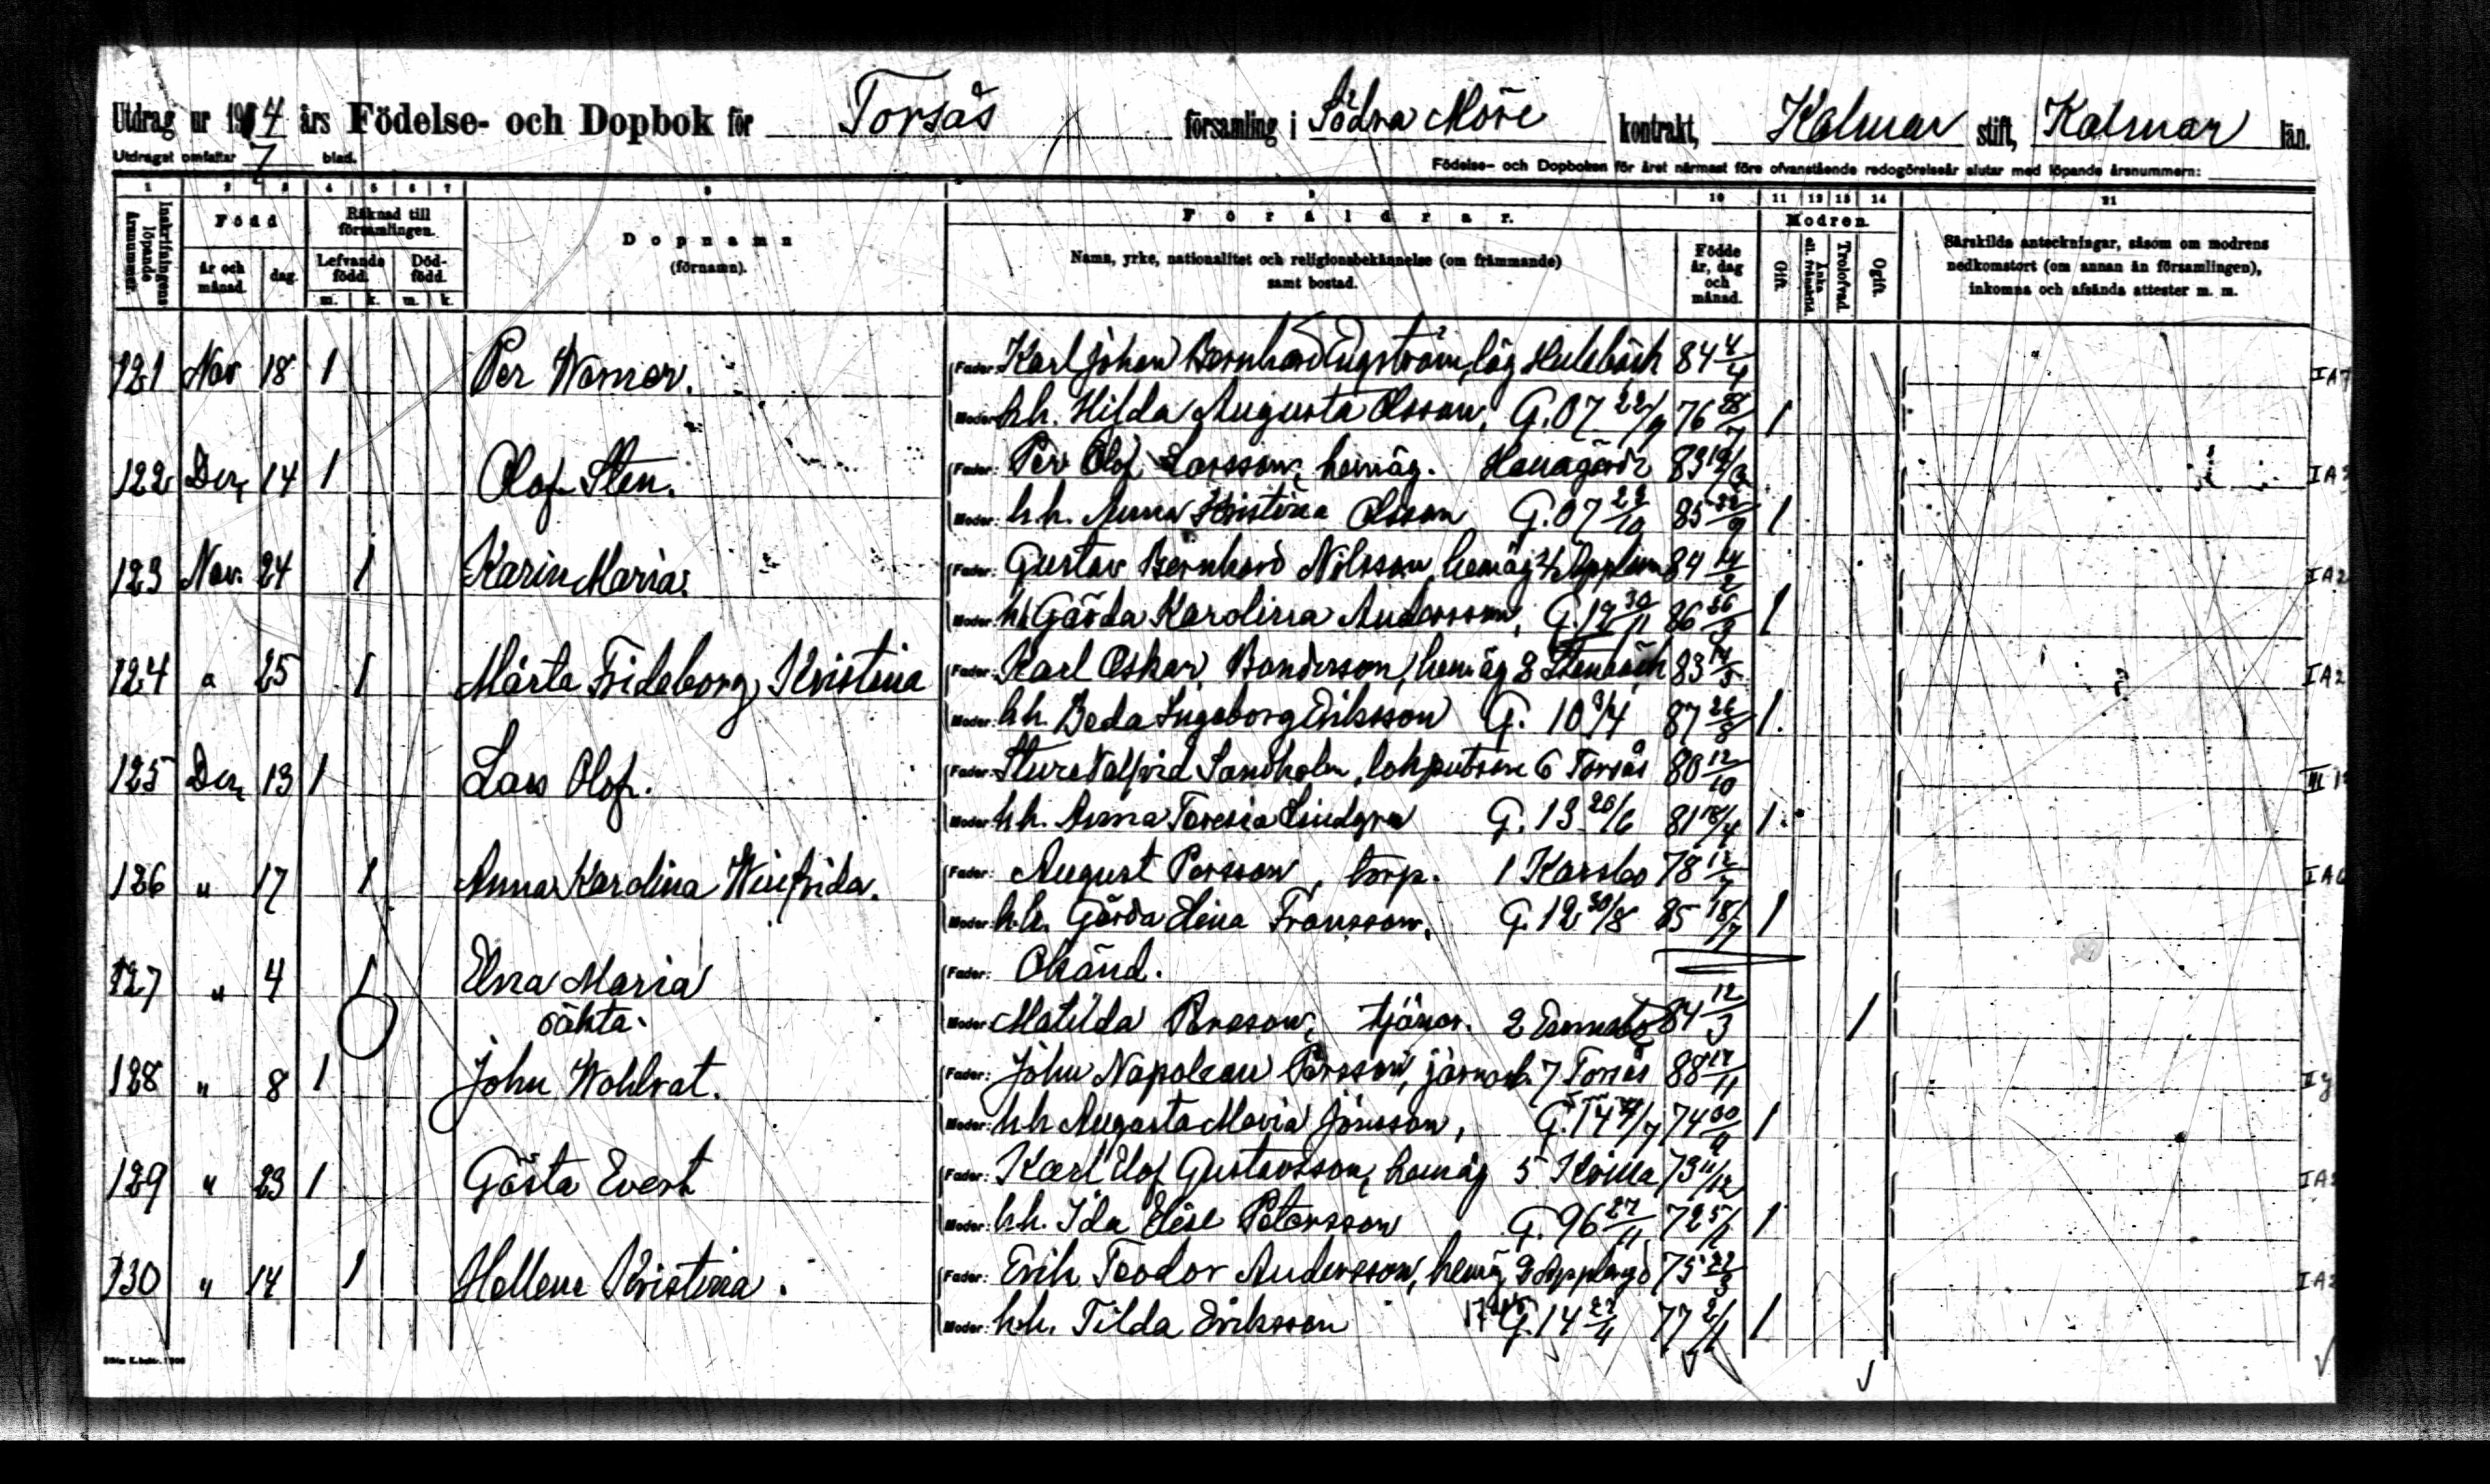 Utdrag ur 1914 års Födelse- och Dopbok för Torsås församling i Södra Möre kontrakt, Kalmar stift, Kalmar län.
Utdraget omfattar 7 blad.
Födelse- och Dopboken för året närmast före ofvanstående redogörelseår slutar med löpande årsnummern:
1 2 3 4 5 6 7 8 9 10 11 12 13 14 21
Inskrifningens löpande årsnummer.
Född
år och månad.
dag.
Räknad till församlingen.
Lefvande född.
Död-född.
m. k. m. k.
Dopnamn
(förnamn).
Föräldrar.
Namn, yrke, nationalitet och religionsbekännelse (om främmande)
samt bostad.
Födde år, dag och månad.
Modren.
Gift.
Änka el. frånskild.
Trolofvad.
Ogift.
Särskilda anteckningar, såsom om modrens
nedkomstort (om annan än församlingen),
inkomna och afsända attester m. m.
121 Nov 18 1 Per Werner. Fader: Karl Johan Bernhard Engström, läg Hulebäck 84 4/4
Moder: hh. Hilda Augusta Olsson, G. 07 22/9 76 28/7 1
122 Dec 14 1 Olof Sten. Fader: Per Olof Larsson, hemäg. 83
Moder: h.h. Anna Kristina Olsson G. 07 29/10 85 1
123 Nov. 24 1 Karin Maria. Fader: Gustav Bernhard Nilsson, hemäg 84 14/2
Moder: hh Gärda Karolina Andersson, G. 12 30/11 86 26/3 1
124 " 25 1 Märta Frideborg Kristina Fader: Karl Oskar Bondesson, hemäg 2 Stenbäck 83 14/5
Moder: hh. Beda Ingeborg Eriksson G. 10 3/4 87 26/8 1.
125 Dec 13 1 Lars Olof. Fader: Sture Valfrid Sandholm, lokputsare 6 Torsås 80 12/10
Moder: hh. Anna Teresia Lindgren G. 13 26/6 81 18/4 1
126 " 17 1 Anna Karolina Winfrida. Fader: August Persson, torp. 1 Karsbo 78 12/7
Moder: h.h. Gärda Elina Fransson, G. 12 30/8 85 18/7 1
127 " 4 1 Elna Maria Fader: Okänd.
oäkta. Moder: Matilda Persson, tjänar. 2 84 12/3 1
128 " 8 1 John Wohlrat. Fader: John Napoleon Persson, järnarb. 7 Torsås 88 17/11
Moder: hh Augusta Maria Jönsson, G. 14 74 30/9 1
129 " 23 1 Gösta Evert Fader: Karl Elof Gustavsson, hemäg 5 Kvilla 73 11/12
Moder: h.h. Ida Elise Petersson G. 96 27/11 72 1
130 " 14 1 Hellene Kristina. Fader: Erik Teodor Andersson, hemäg 75 22/3
Moder: h.h. Tilda Eriksson G. 14 27/4 77 1